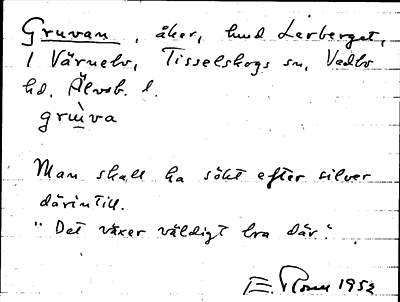 Gruvan, åker, hmd Lerberget,
1 Värnebo, Tisselskogs sn, Vedbo
hd. Älvsb. l.
grùva
Man skall ha sökt efter silver
därintill.
"Det växer väldigt bra där."
1952